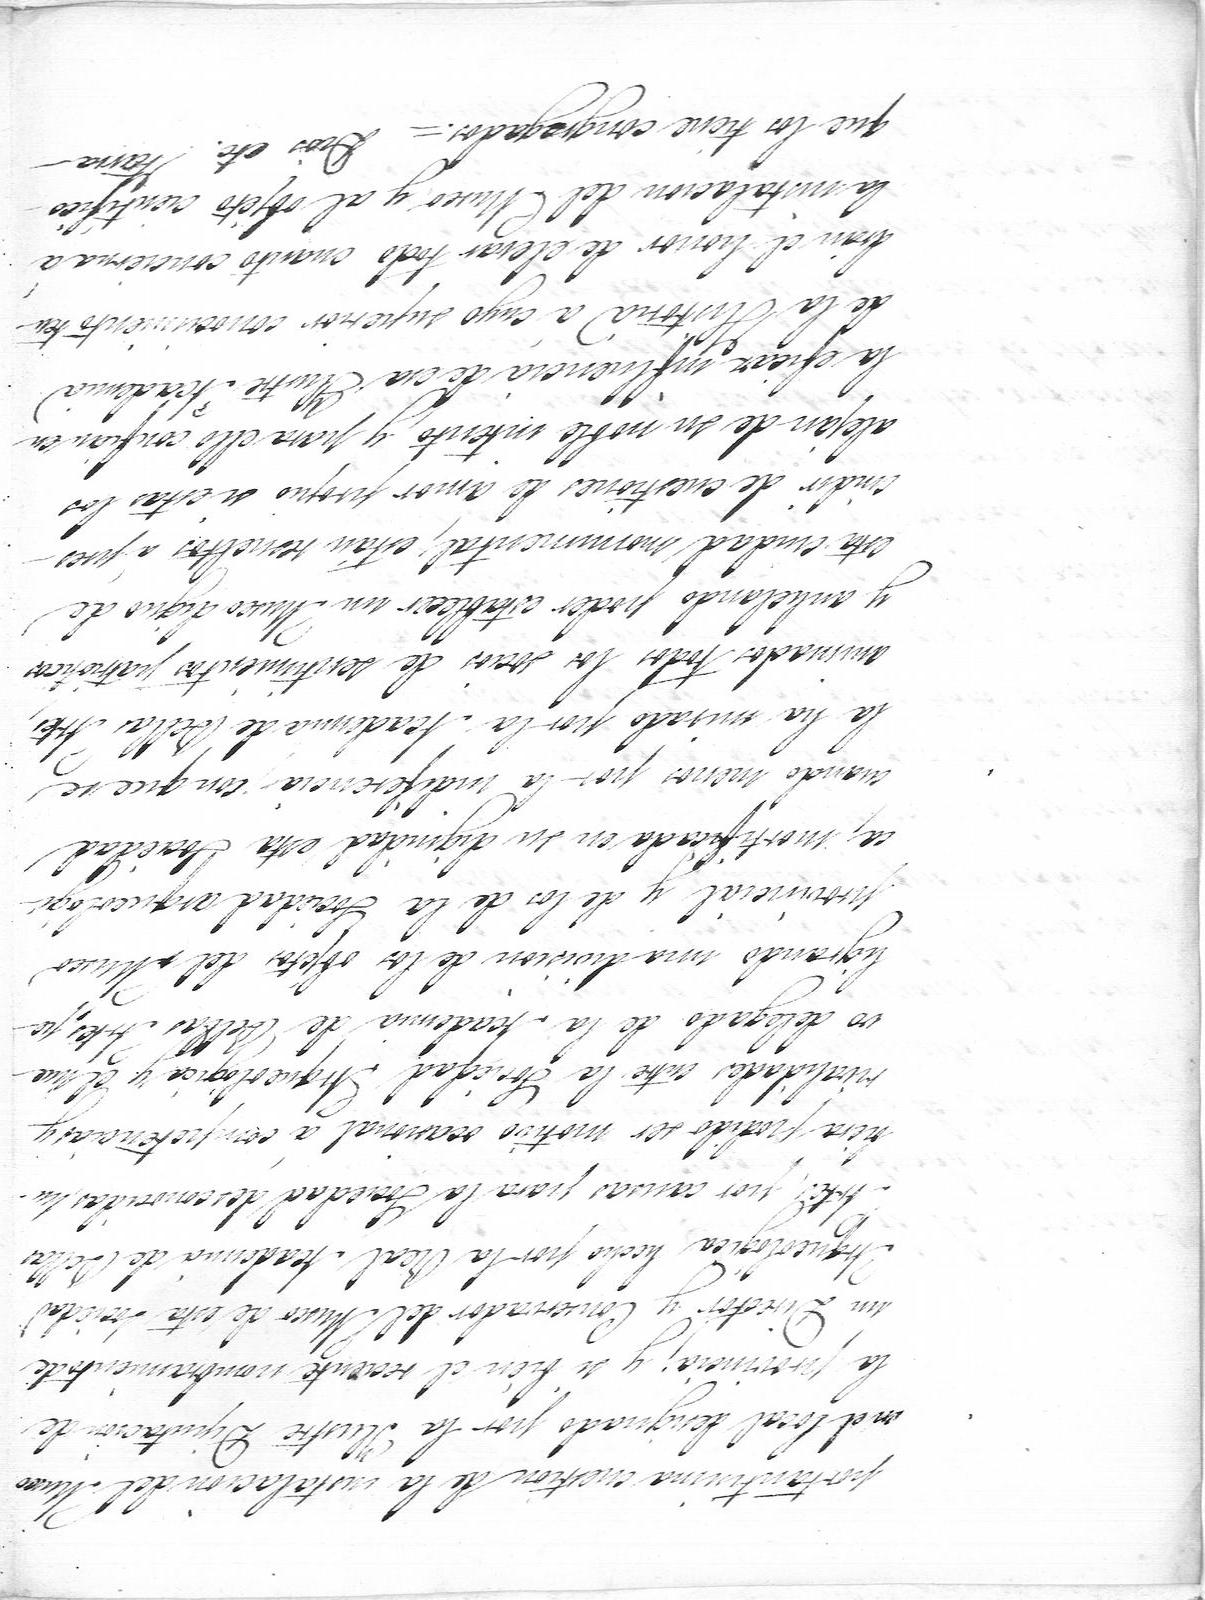 portantisima cuestion de la instalacion del Museo
en el local designado por la Ilustre Diputacion de
la provincia; y si bien el reciente nombramiento de
un Director y Conservador del Museo de esta Sociedad
Arqueologica hecho por la Real Academia de Bellas
Artes, por causas para la Sociedad desconocidas, hu-
biera podido ser motivo ocasional á competencias y
rivalidades entre la Sociedad Arqueologica y el nue-
vo delegado de la Academia de Bellas Artes, pe-
ligrando una division de los objetos del Museo
provincial y de los de la Sociedad arqueologi-
ca; mortificada en su dignidad esta Sociedad
cuando menos por la indiferencia con que se
la ha mirado por la Academia de Bellas Artes,
animados todos los socios de sentimientos patrioticos
y anhelando poder establecer un Museo digno de
esta ciudad monumental, estan resueltos a pres-
cindir de cuestiones de amor propio si estas los
alejan de su noble intento, y para ello confian en
la eficaz influencia de esa Ilustre Academia
de la Historia á cuyo superior conocimiento ten-
drán el honor de elevar todo cuanto concierna á
la instalacion del Museo y al objeto cientifico
que los tiene congregados. = Dios etc. Tarra-